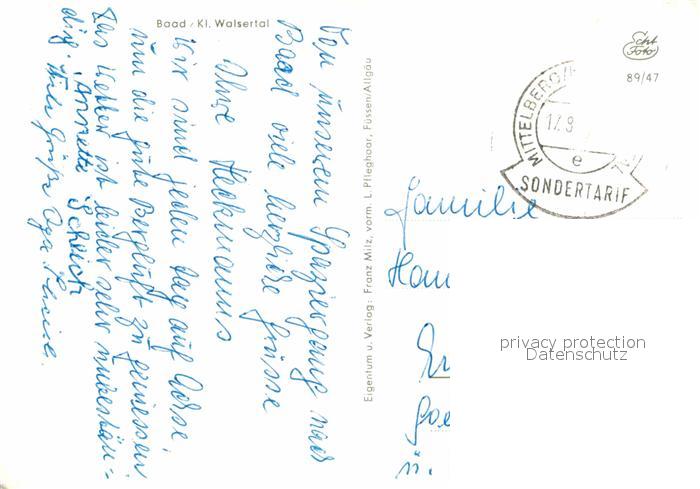 Baad / Kl. Walsertal
Von unserem Spaziergang nach
Baad viele herzliche Grüsse
Ihre Heckmanns
Wir sind jeden Tag auf Achse
um die gute Bergluft zu geniessen
Das Wetter ist leider sehr unbestän-
dig. Annette Scheich
Viele Grüße
Eigentum u. Verlag: Franz Milz, vorm. L. Pfleghaar, Füssen/Allgäu
Echt
Foto
89/47
MITTELBERG
17.9
e
SONDERTARIF
Familie
privacy protection
Datenschutz